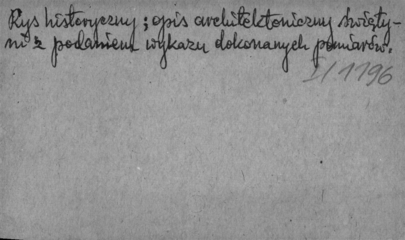 Rys historyczny ; opis architektoniczny świąty-
ni z podaniem wykazu dokonanych pomiarów.
I/1196